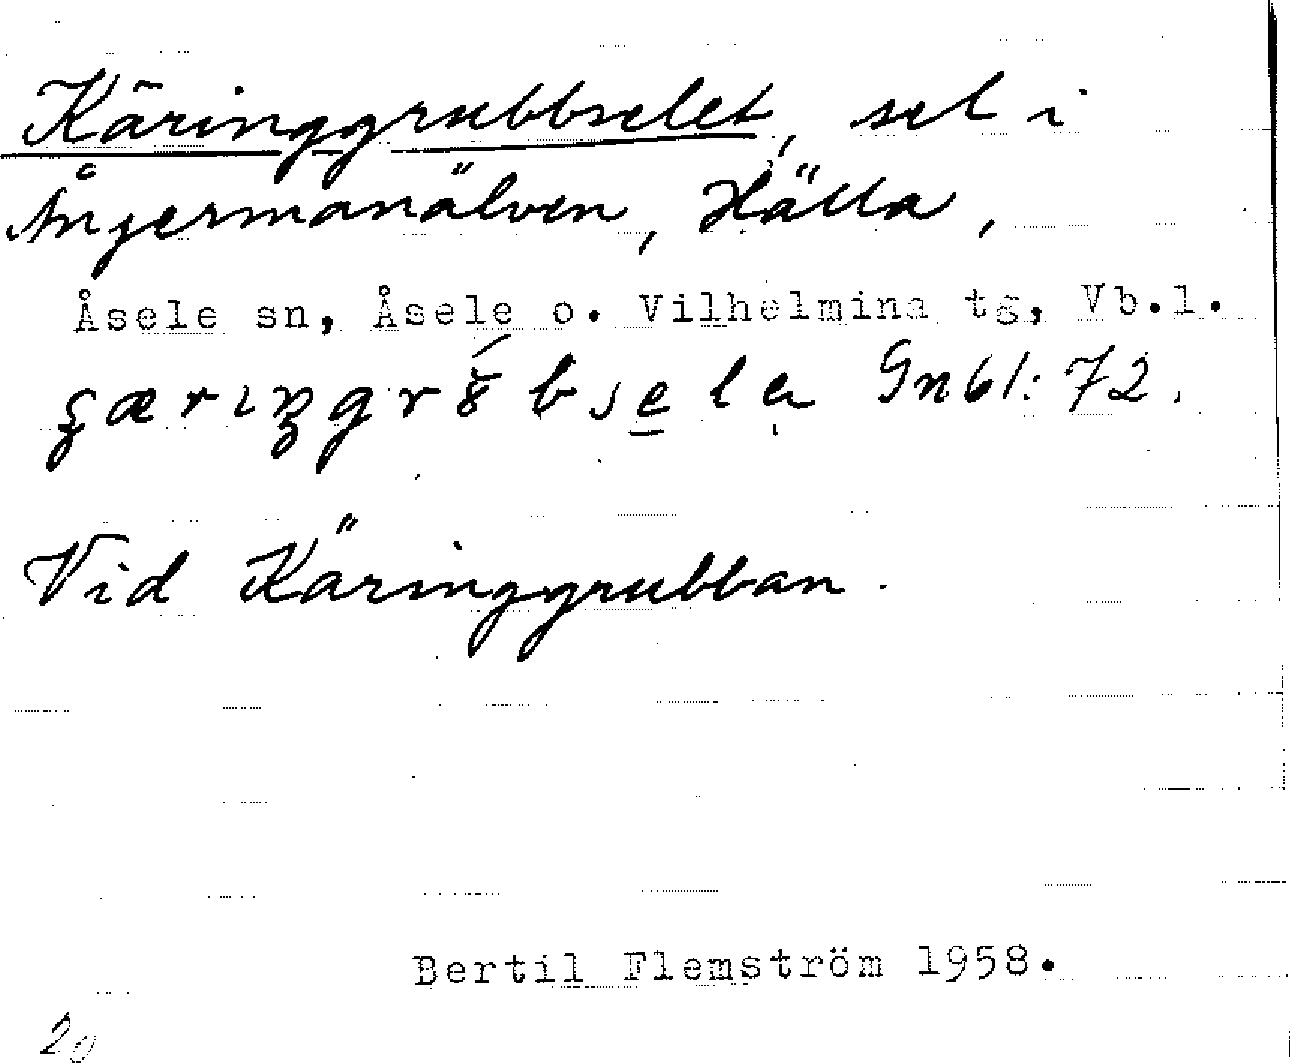 Käringgrubbselet, sel i
Ångermanälven, Hälla,
Åsele sn, Åsele o. Vilhelmina tg, Vb.l.
Gnbl: 72.
Vid Käringgrubban.
Bertil Flemström 1958.
20